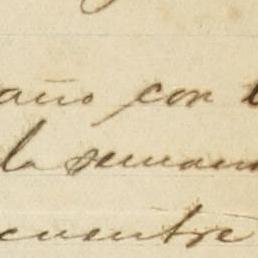 año con
la semana
cuentre